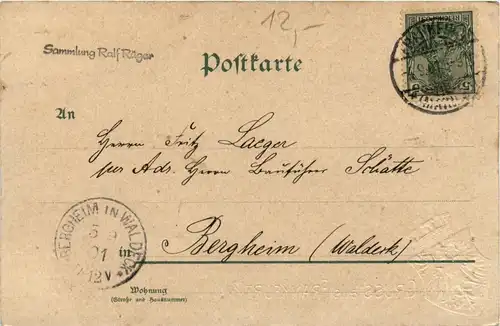 12,-
Sammlung Ralf Rüger
Postkarte
An
Herrn Fritz Laeger
per Ads. Herrn Bauführer Schätte
in Bergheim (Waldeck)
BERGHEIM IN WALDECK
5 9
01
12V
Wohnung
(Straße und Hausnummer)